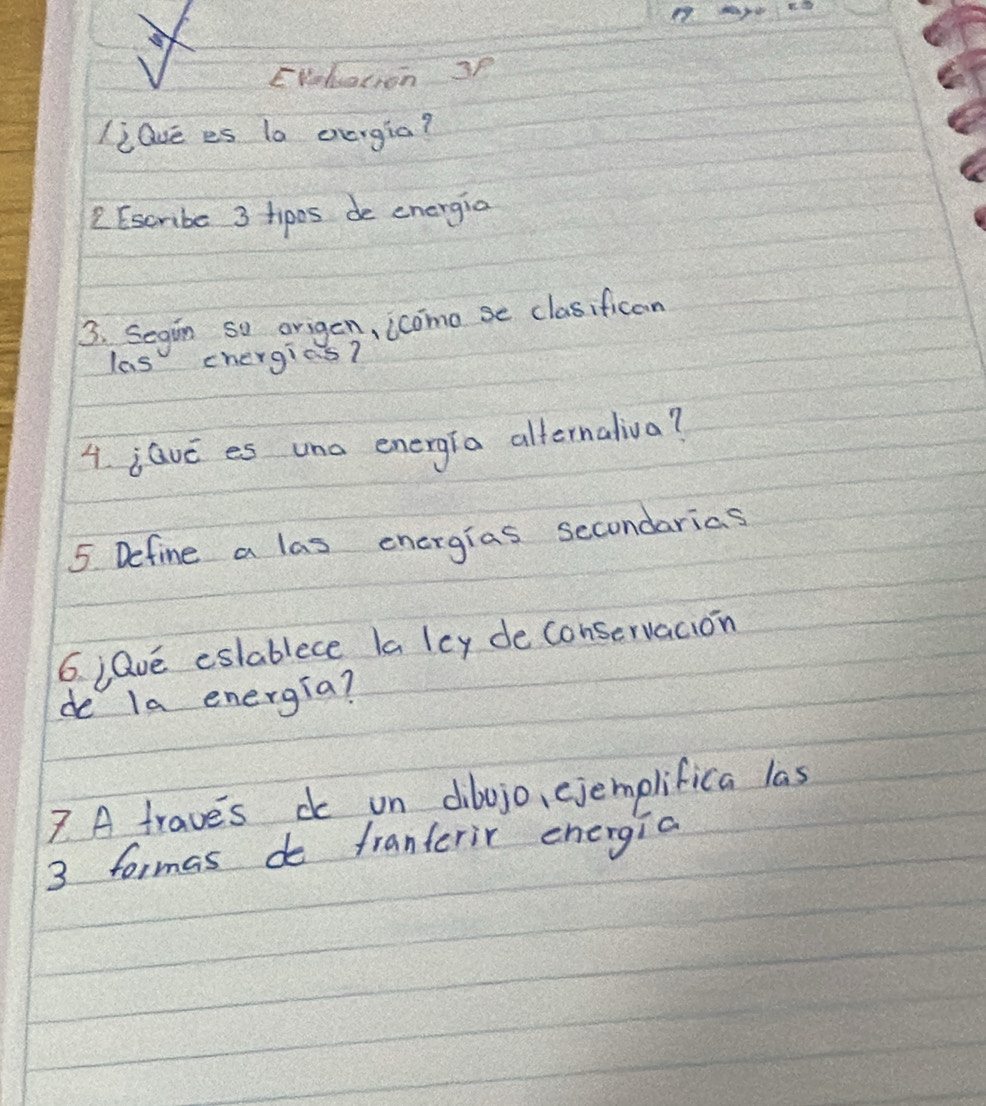 Evaluación 3P
1 ¿Qué es la energía?
2 Escribe 3 tipos de energía
3. Según su origen, ¿cómo se clasifican
las energías?
4. ¿Qué es una energía alternativa?
5 Define a las energías secundarias
6. ¿Qué establece la ley de conservación
de la energía?
7 A través de un dibujo, ejemplifica las
3 formas de tranferir energía